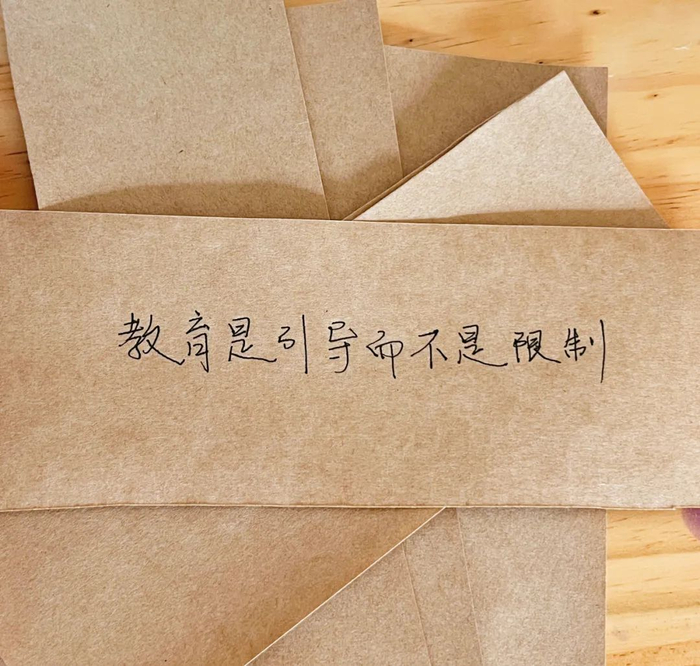 教育是引导而不是限制